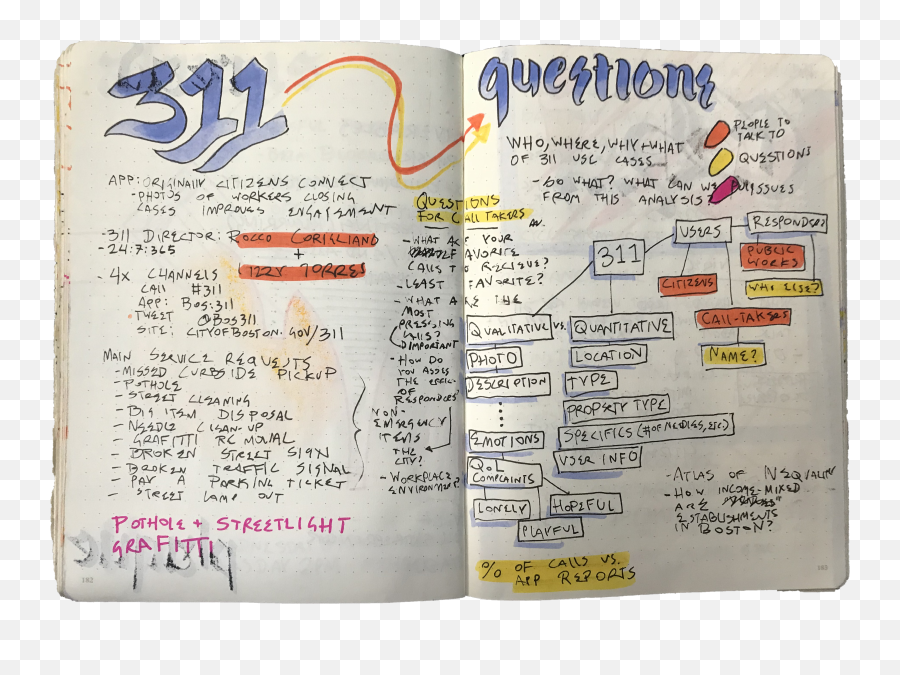 311
APP: ORIGINALLY CITIZENS CONNECT
- PHOTOS OF WORKERS CLOSING
CASES IMPROVES ENGAGEMENT
- 311 DIRECTOR: ROCCO CORIGLIANO
+
- 24:7:365
LIZZY TORRES
- 4X CHANNELS
CALL #311
APP: BOS:311
TWEET @BOS311
SITE: CITYOFBOSTON.GOV/311
MAIN SERVICE REQUESTS
- MISSED CURBSIDE PICKUP
- POTHOLE
- STREET CLEANING
- BIG ITEM DISPOSAL
- NEEDLE CLEAN-UP
- GRAFITTI REMOVAL
- BROKEN STREET SIGN
- BROKEN TRAFFIC SIGNAL
- PAY A PARKING TICKET
- STREET LAMP OUT
NON-
EMERGENCY
ITEMS
POTHOLE + STREETLIGHT
GRAFITTI
182
QUESTIONS
FOR CALL TAKERS
- WHAT ARE YOUR
FAVORITE
CALLS TO RECIEVE?
- LEAST FAVORITE?
- WHAT ARE THE
MOST
PRESSING
IMPORTANT
- HOW DO
YOU ASSESS
THE
OF
RESPONDERS?
THE
CITY?
- WORKPLACE
ENVIRONMENT?
questions
WHO, WHERE, WHY + WHAT
OF 311 USE CASES
- SO WHAT? WHAT CAN WE
FROM THIS ANALYSIS?
PEOPLE TO
TALK TO
QUESTIONS
ISSUES
311
USERS
RESPONDERS
PUBLIC
WORKS
WHO ELSE?
CITIZENS
CALL-TAKERS
NAME?
QUALITATIVE VS. QUANTITATIVE
PHOTO
LOCATION
DESCRIPTION
TYPE
PROPERTY TYPE
EMOTIONS
SPECIFICS (# OF NEEDLES, ETC.)
USER INFO
QOL
COMPLAINTS
LONELY
HOPEFUL
PLAYFUL
- ATLAS OF INEQUALITY
- HOW INCOME-MIXED
ARE
ESTABLISHMENTS
IN BOSTON?
% OF CALLS VS.
APP REPORTS
183